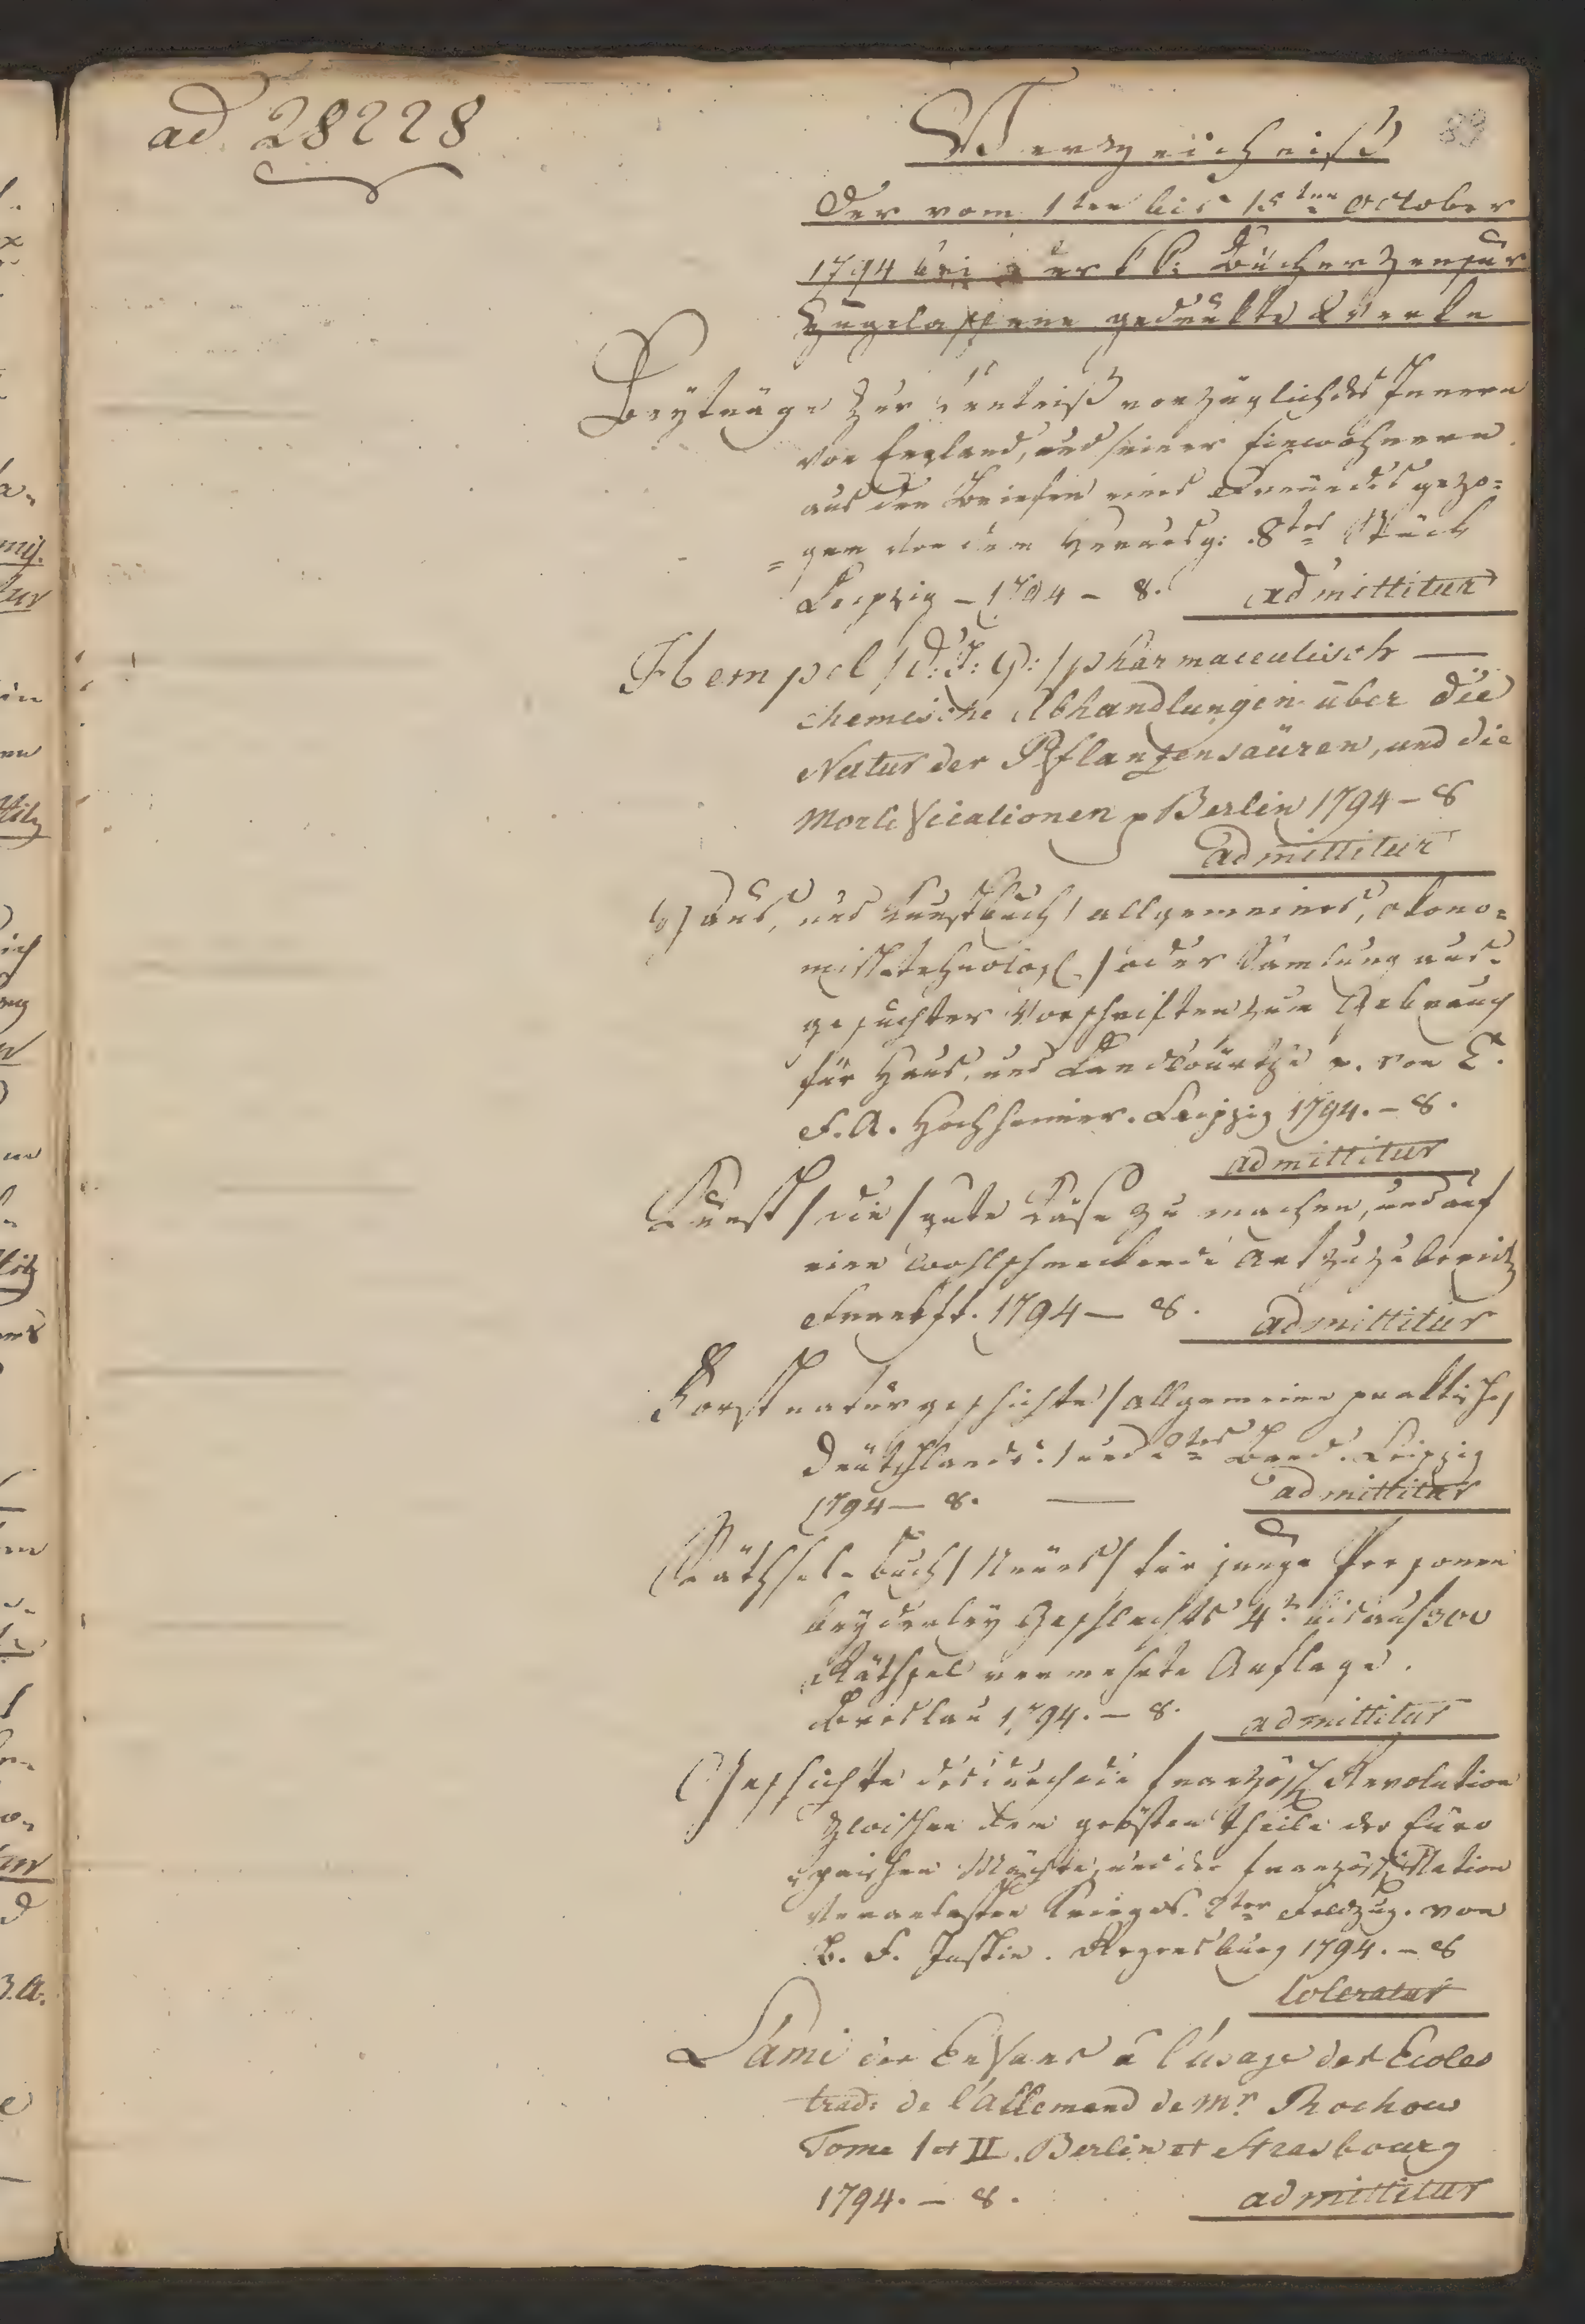 ad 28228
83
Verzeichniß
Der vom 1ten bis 15ten October
1794 bei der k k: Bücher Zensur
Zugelassene gedrukte Werke
Beyträge zur Kentniß vorzüglich des Innern
von England, und seiner Einwohnern
aus den Briefen eines Freundes gezo=
=gen von dem Herausg: 8tes Stück
Leipzig – 1794 – 8. admittitur
Hempel /D: J: G: /pharmaceutisch —
chemische Abhandlungen über die
Natur der Pflanzensaüren, und die
Morlificationen p Berlin 1794 – 8
admittitur
Haus, und Kunstbuch / allgemeines, okono=
misch tehnolog. / oder Samlung aus=
gesuchter Vorschriften zum Gebrauch
für Haus, und Landwürthe p. von C.
F. A. Hochheimer. Leipzig 1794. – 8.
admittitur
Kunst / die / gute Käse zu machen, und auf
eine wohlschmeckende Art zuzubereiten
Frankft. 1794 — 8. admittitur
Forstnaturgeschichte / allgemeine praktische /
Deutschlands. 1 und 2tes Band. Leipzig
1794 — 8. — admittitur
Räthsel-buch / Neues / für junge Personen
beyderley Geschlechts 4te bis auf 300
Räthsel vermehrte Auflage.
Breslau 1794. – 8. admittitur
Geschichte des durch die französ. Revolution
zwischen dem grösten Theile der Euro
päischen Mächte, und der französ. Nation
veranlasten Krieges. 2ter Feldzug. von
B. F. Justin. Regensburg 1794. – 8
toleratur
L'ami des Enfans a l'usage des Ecoles
trad: de l'allemand de Mr. Rochow
Tome I et II. Berlin et Strasbourg
1794. – 8. admittitur